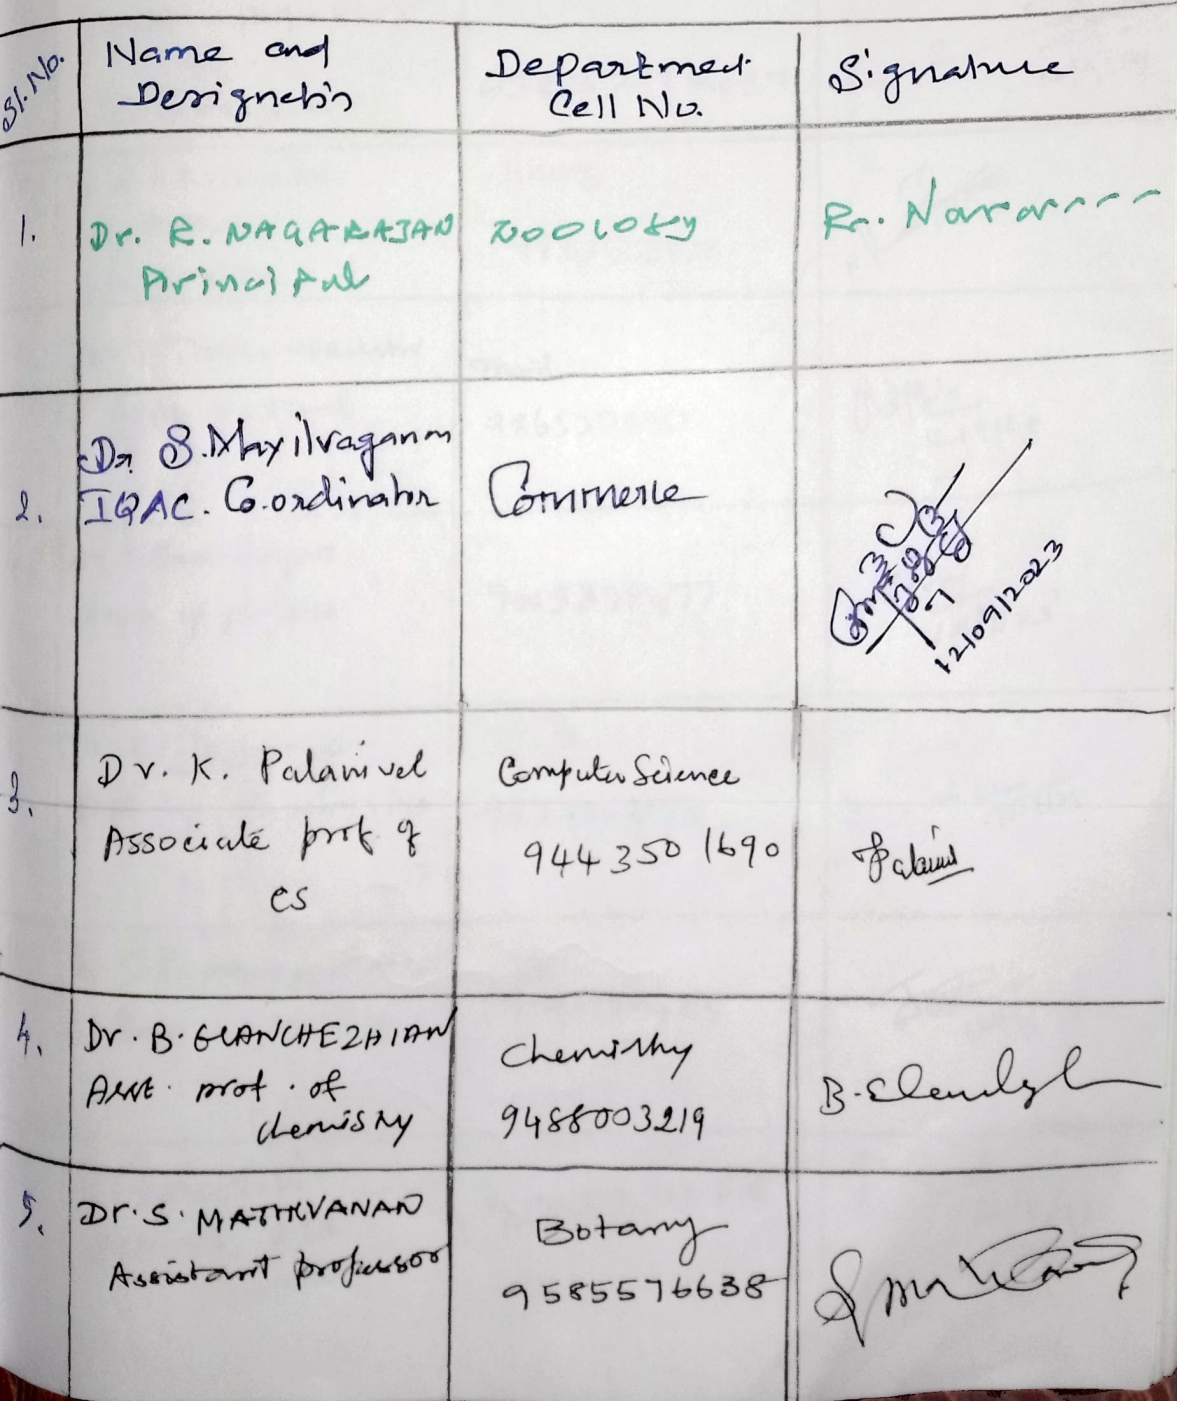 Sl. No.
Name and
Designation
Department
Cell No.
Signature
1.
Dr. R. NAGARAJAN
Principal
Zoology
2.
Dr. S. Mayilvaganan
IQAC. Co.ordinator
Commerce
12/09/2023
3.
Dr. K. Palanivel
Associate prof. of
CS
Computer Science
944350 1690
4.
Dr. B. ELANCHEZHIAN
Asst. prof. of
chemistry
Chemistry
9488003219
B. 
5.
Dr. S. MATHIVANAN
Assistant professor
Botany
9585576638